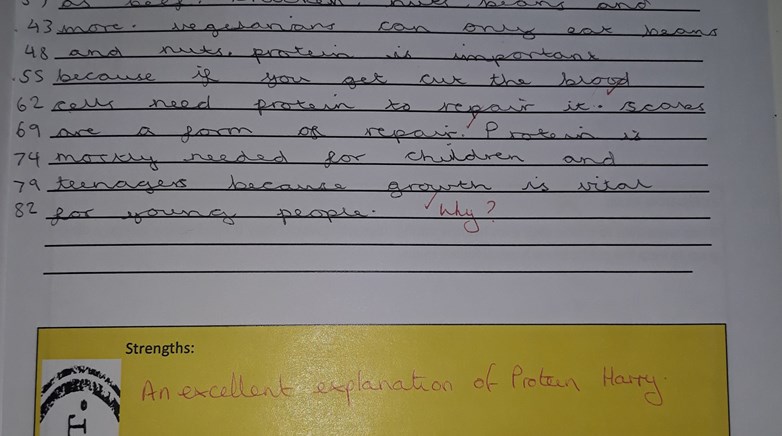 as beef, chicken, nuts, beans and
43 more. vegetarians can only eat beans
48 and nuts. protein is important
55 because if you get cut the blood
62 cells need protein to repair it. scabs
69 are a form of repair. Protein is
74 mostly needed for children and
79 teenagers because growth is vital
82 for young people. Why?
Strengths:
An excellent explanation of Protein Harry.